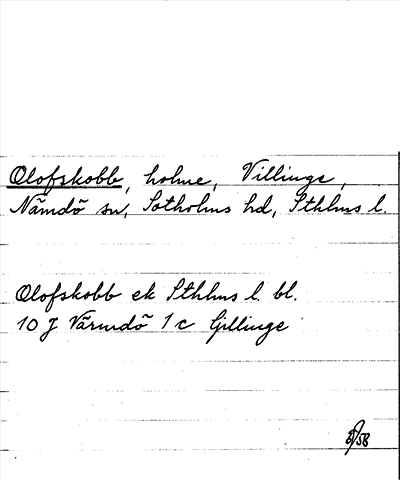 Olofskobb, holme, Villinge,
Nämdö sn, Sotholms hd, Sthlms l.
Olofskobb ek Sthlms l. bl.
10 J Värmdö 1 c Gillinge